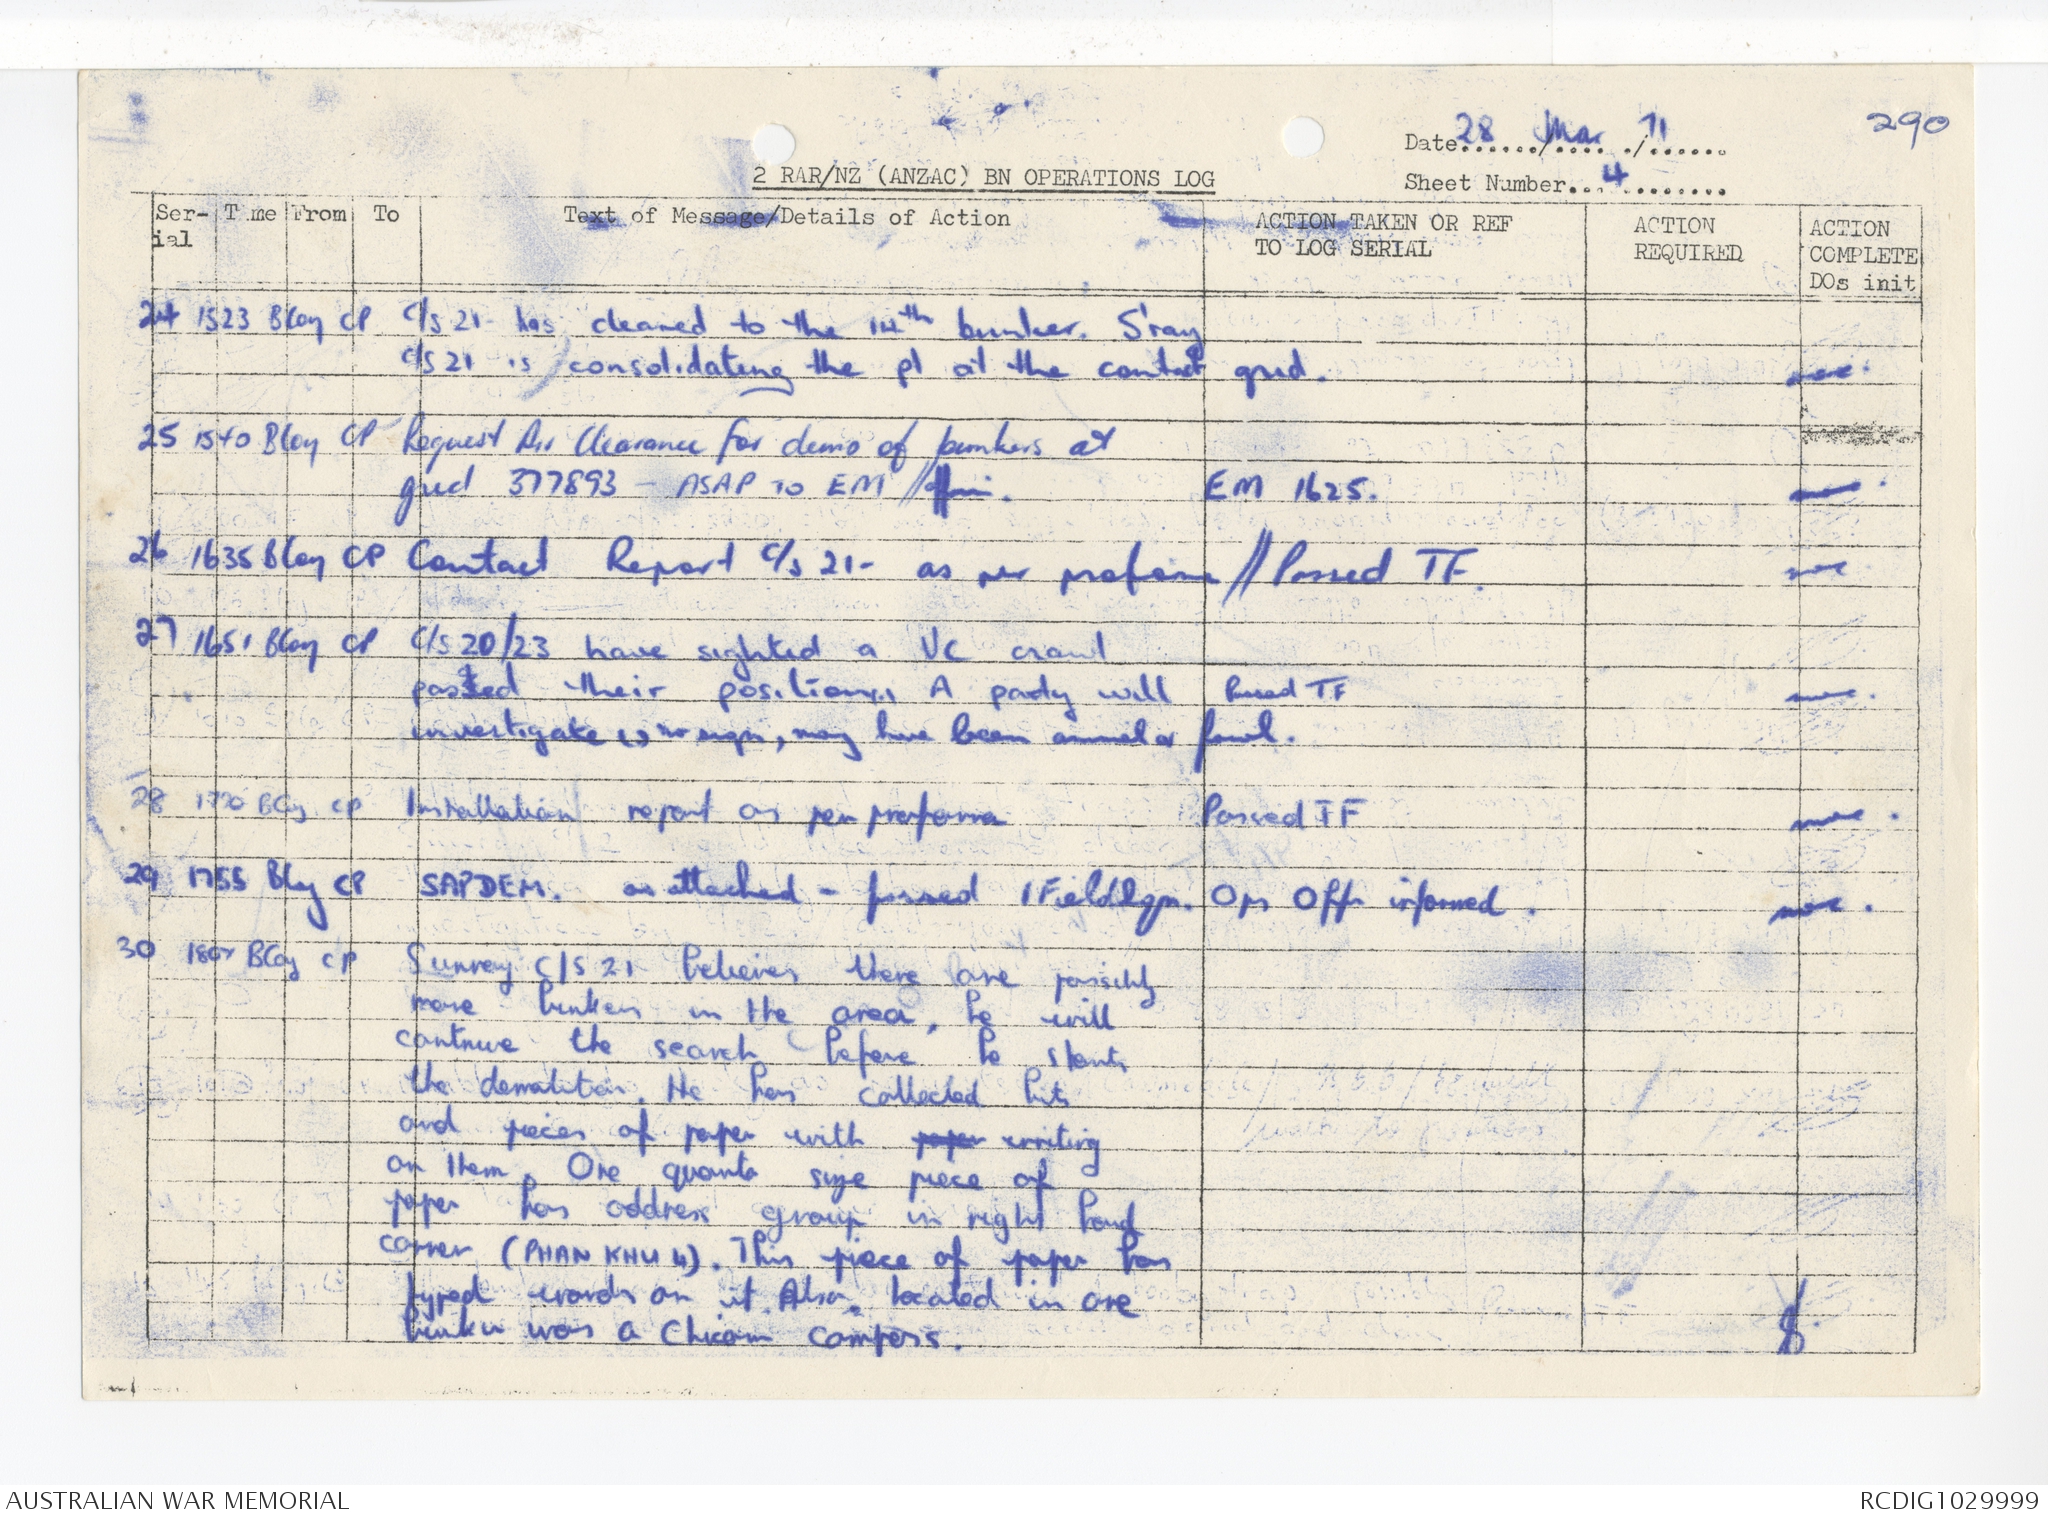 290
Date 28/Mar/71
2 RAR/NZ (ANZAC) BN OPERATIONS LOG
Sheet Number 4
Ser-ial Time From To Text of Message/Details of Action ACTION TAKEN OR REF TO LOG SERIAL ACTION REQUIRED ACTION COMPLETE DOs init
24 1523 BCoy CP C/S 21- has cleared to the 14th bunker. S'ray
C/S 21 is consolidating the pl at the contact grid.
25 1540 BCoy CP Request Air Clearance for demo of bunkers at
grid 377893 - ASAP TO EM // EM 1625.
26 1635 BCoy CP Contact Report C/S 21- as per proforma // Passed TF.
27 1651 BCoy CP C/S 20/23 have sighted a VC crawl
passed their position. A party will Passed TF
investigate no sign, may have been animal or fowl.
28 1720 BCoy CP Installation report as per proforma Passed TF
29 1755 BCoy CP SAPDEM. as attached - passed 1 Field Sqn. Ops Offr informed.
30 BCoy CP Sunray C/S 21 believes there are possibly
more bunkers in the area, he will
continue the search before he starts
the demolition. He has collected bits
and pieces of paper with paper writing
on them. One quarto size piece of
paper has address group in right hand
corner (PHAN KHU 4). This piece of paper has
typed words on it. Also, located in one
bunker was a Chicom compass.
AUSTRALIAN WAR MEMORIAL
RCDIG1029999